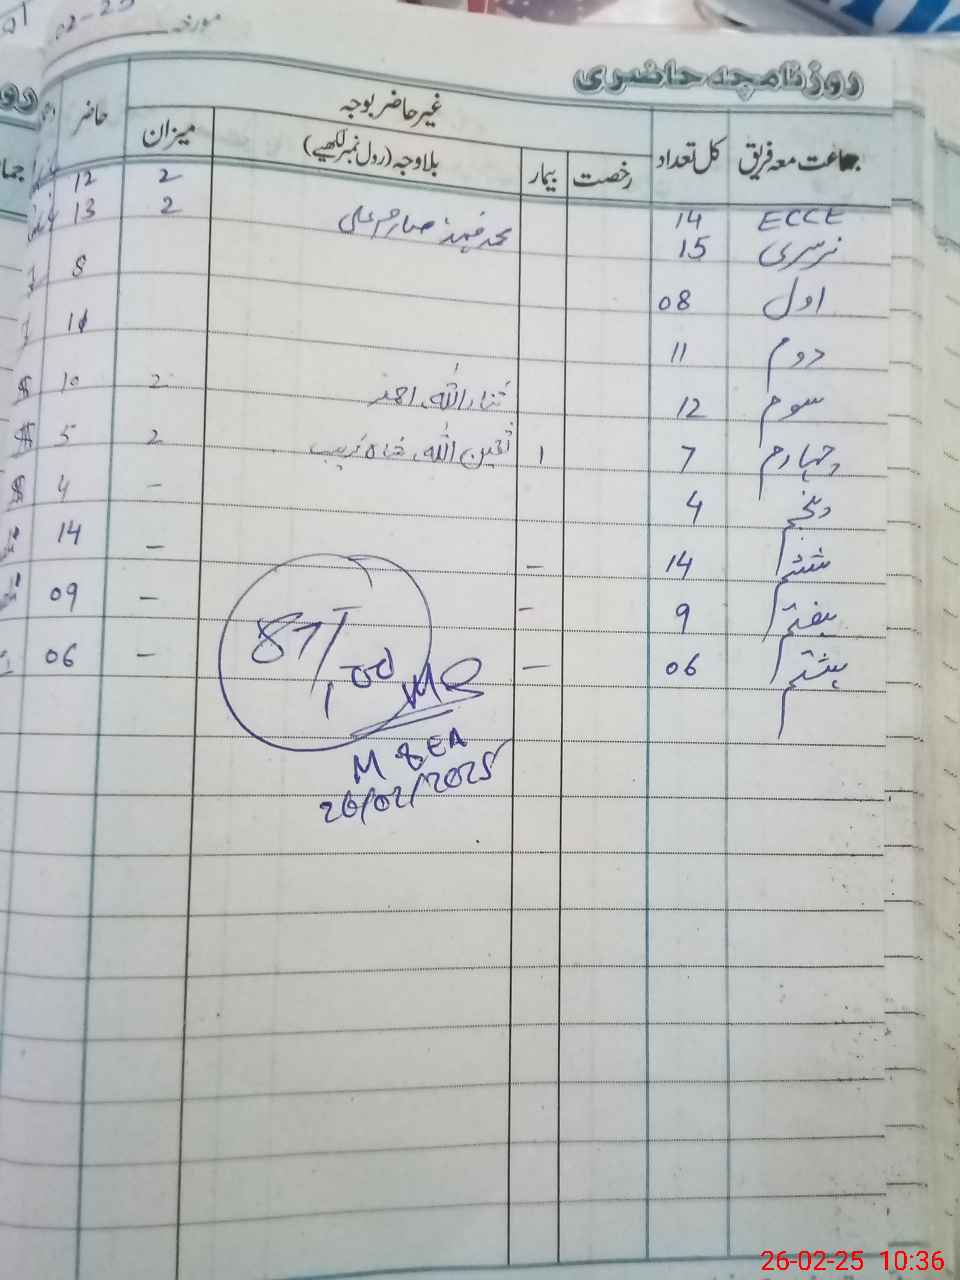 02-25 مورخہ
روزنامچہ حاضری
جماعت معہ فریق کل تعداد غیر حاضر بوجہ حاضر
رخصت بیمار بلاوجہ (رول نمبر لکھیے) میزان
ECCE 14 2 12
نرسری 15 محمد فہد، صارم علی 2 13
اول 08 8
دوم 11 11
سوم 12 ثناء اللہ، احمد 2 10
چہارم 7 1 ثمین اللہ، 2 5
پنجم 4 - 4
ششم 14 - - 14
ہفتم 9 - - 09
ہشتم 06 - - 06
87/100
MEA
26/02/2025
26-02-25 10:36